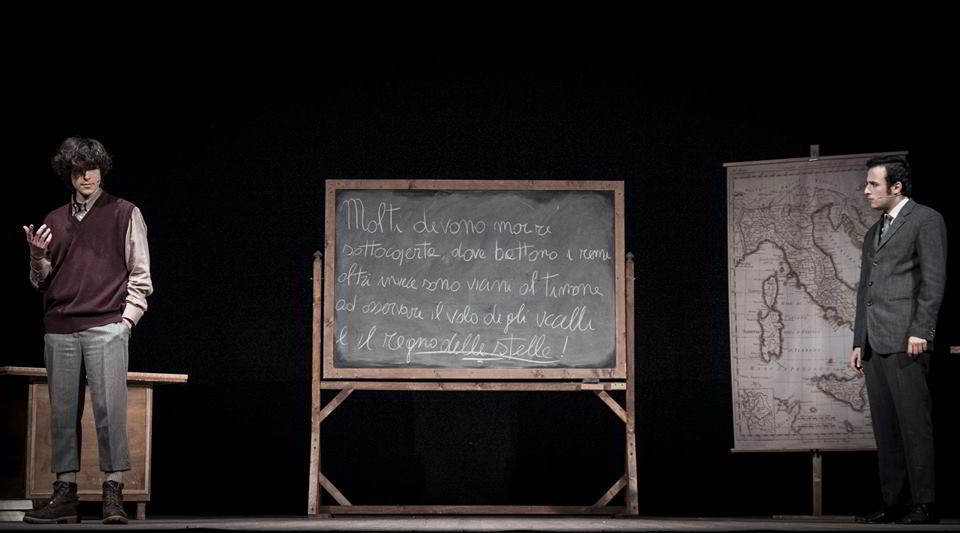 Molti devono morire
sottocoperta, dove battono i remi
altri invece sono vicini al timone
ad osservare il volo degli uccelli
e il regno delle stelle!